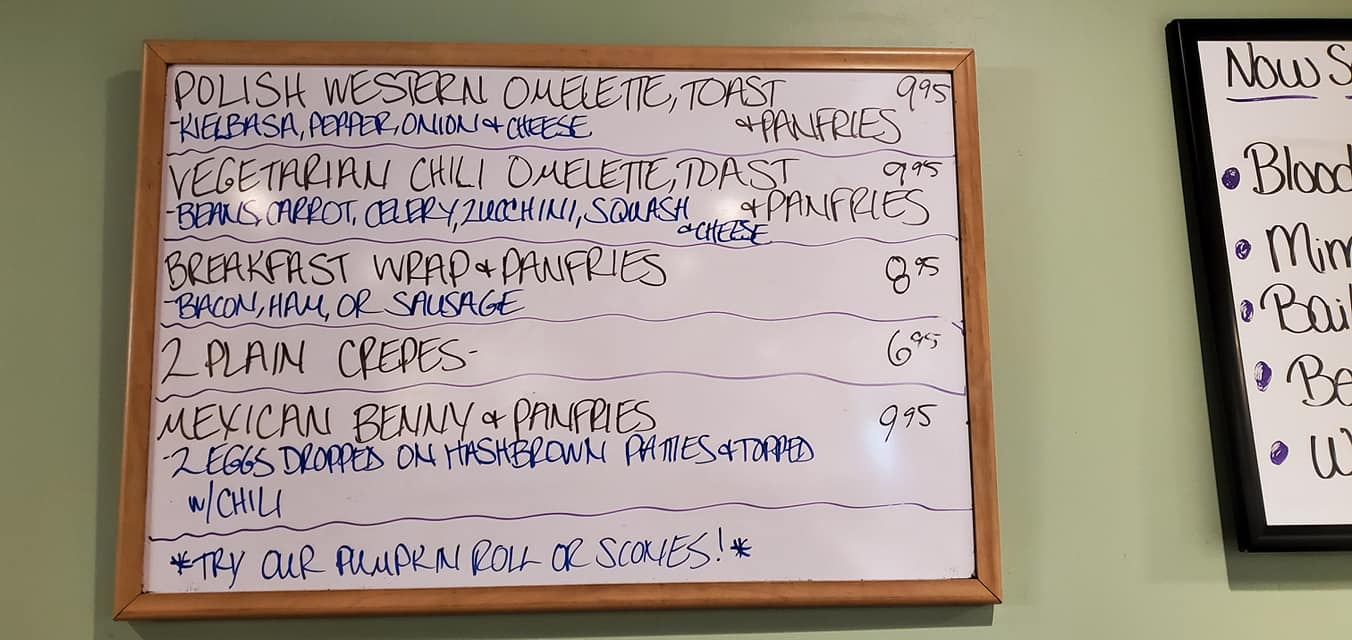 POLISH WESTERN OMELETTE, TOAST 9.95
-KIELBASA, PEPPER, ONION & CHEESE &PANFRIES
VEGETARIAN CHILI OMELETTE, TOAST 9.95
-BEANS, CARROT, CELERY, ZUCCHINI, SQUASH &PANFRIES
&CHEESE
BREAKFAST WRAP & PANFRIES 8.95
-BACON, HAM, OR SAUSAGE
2 PLAIN CREPES- 6.95
MEXICAN BENNY & PANFRIES 9.95
-2 EGGS DROPPED ON HASHBROWN PATTIES & TOPPED
W/CHILI
*TRY OUR PUMPKIN ROLL OR SCONES!*
Now S
Blood
Mim
Bail
Be
W